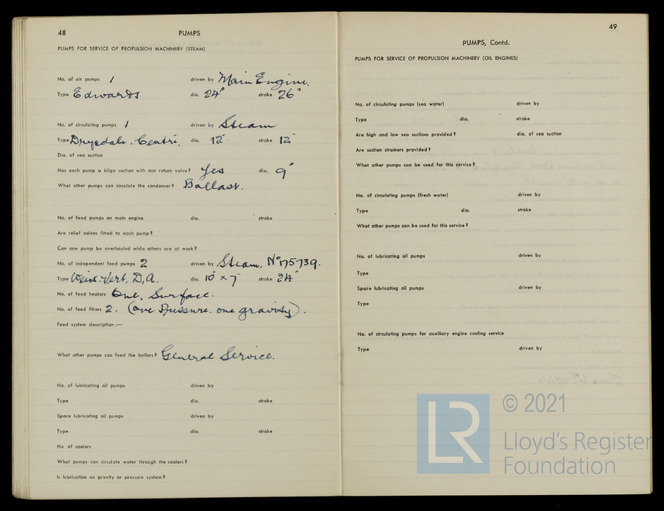 48 PUMPS
PUMPS FOR SERVICE OF PROPULSION MACHINERY (STEAM)
No. of air pumps 1 driven by Main Engine.
Type Edwards dia. 24" stroke 26"
No. of circulating pumps 1 driven by Steam
Type Drysdale. Centri. dia. 12" stroke 12"
Dia. of sea suction
Has each pump a bilge suction with non return valve? Yes dia. 9"
What other pumps can circulate the condenser? Ballast.
No. of feed pumps on main engine dia. stroke
Are relief valves fitted to each pump?
Can one pump be overhauled while others are at work?
No. of independent feed pumps 2 driven by Steam. Nº 175739.
Type Weirs Vert. D.A. dia. 10" x 7" stroke 24"
No. of feed heaters One, Surface.
No. of feed filters 2. (one Pressure. one gravity).
Feed system description:—
What other pumps can feed the boilers? General Service.
No. of lubricating oil pumps driven by
Type dia. stroke
Spare lubricating oil pumps driven by
Type dia. stroke
No. of coolers
What pumps can circulate water through the coolers?
Is lubrication on gravity or pressure system?
49
PUMPS, Contd.
PUMPS FOR SERVICE OF PROPULSION MACHINERY (OIL ENGINES)
No. of circulating pumps (sea water) driven by
Type dia. stroke
Are high and low sea suctions provided? dia. of sea suction
Are suction strainers provided?
What other pumps can be used for this service?
No. of circulating pumps (fresh water) driven by
Type dia. stroke
What other pumps can be used for this service?
No. of lubricating oil pumps driven by
Type
Spare lubricating oil pumps driven by
Type
No. of circulating pumps for auxiliary engine cooling service
Type driven by
LR © 2021
Lloyd's Register
Foundation